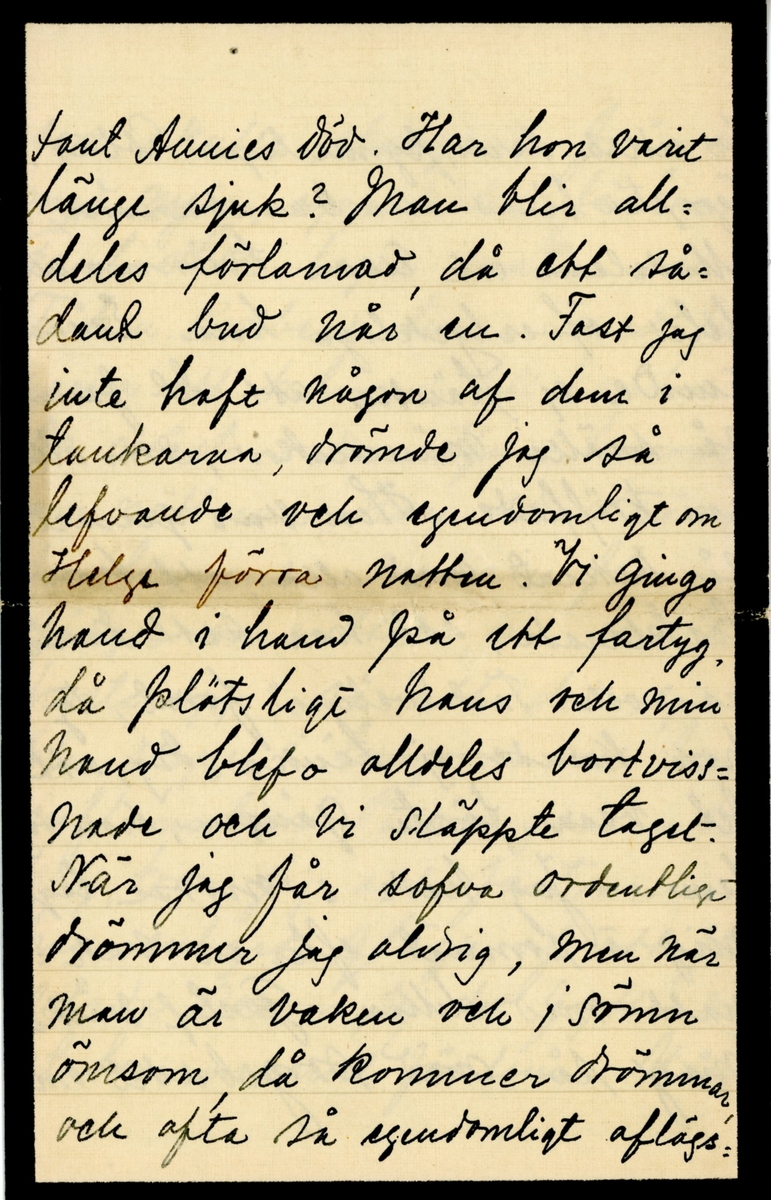 tant Annies död. Har hon varit
länge sjuk? Man blir all=
deles förlamad, då ett så=
dant bud når en. Fast jag
inte haft någon af dem i
tankarna, drömde jag så
lefvande och egendomligt om
Helge förra natten. Vi gingo
hand i hand på ett fartyg,
då plötsligt hans och min
hand blefo alldeles bortviss=
nade och vi släppte taget.
När jag får sofva ordentligt
drömmer jag aldrig, men när
man är vaken och i sömn
ömsom, då kommer drömmar,
och ofta så egendomligt aflägs=